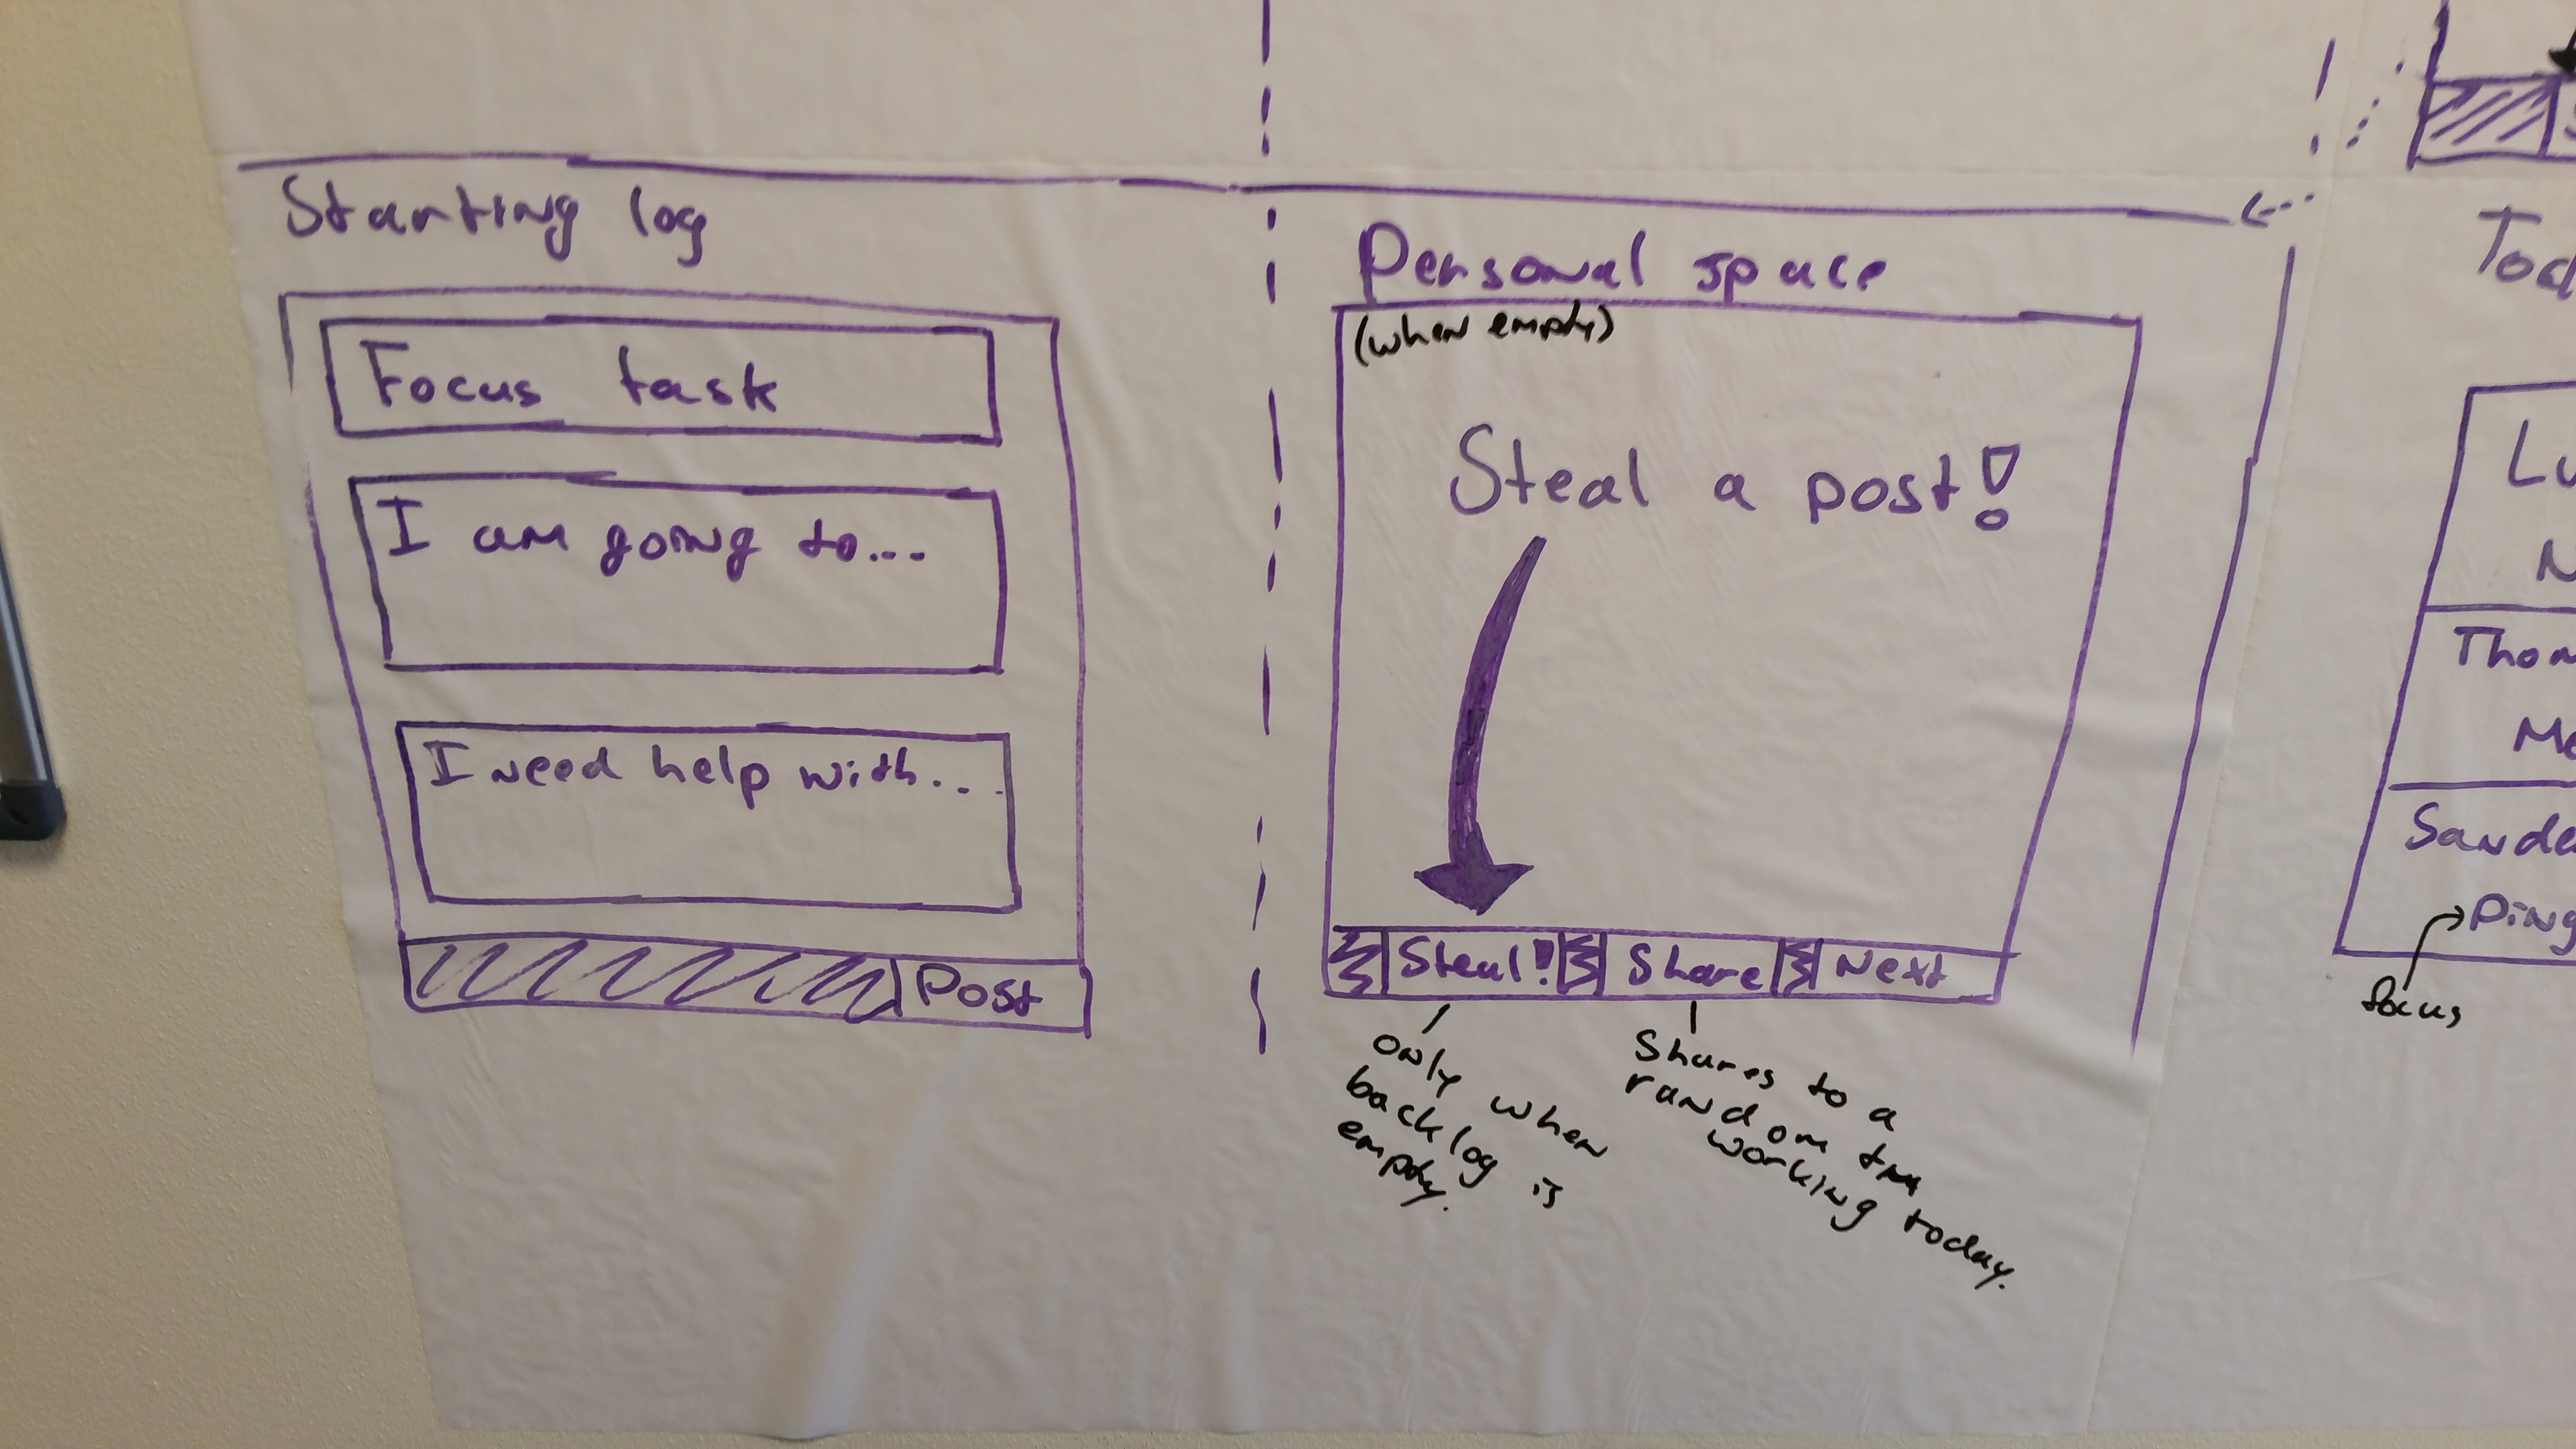 Starting log
Focus task
I am going to...
I need help with...
Post
Personal space
(when empty)
Steal a post!
Steal! Share Next
only when
backlog is
empty.
Shares to a
random tm
working today.
Tod
Lu
N
Thom
Me
Sande
Ping
focus